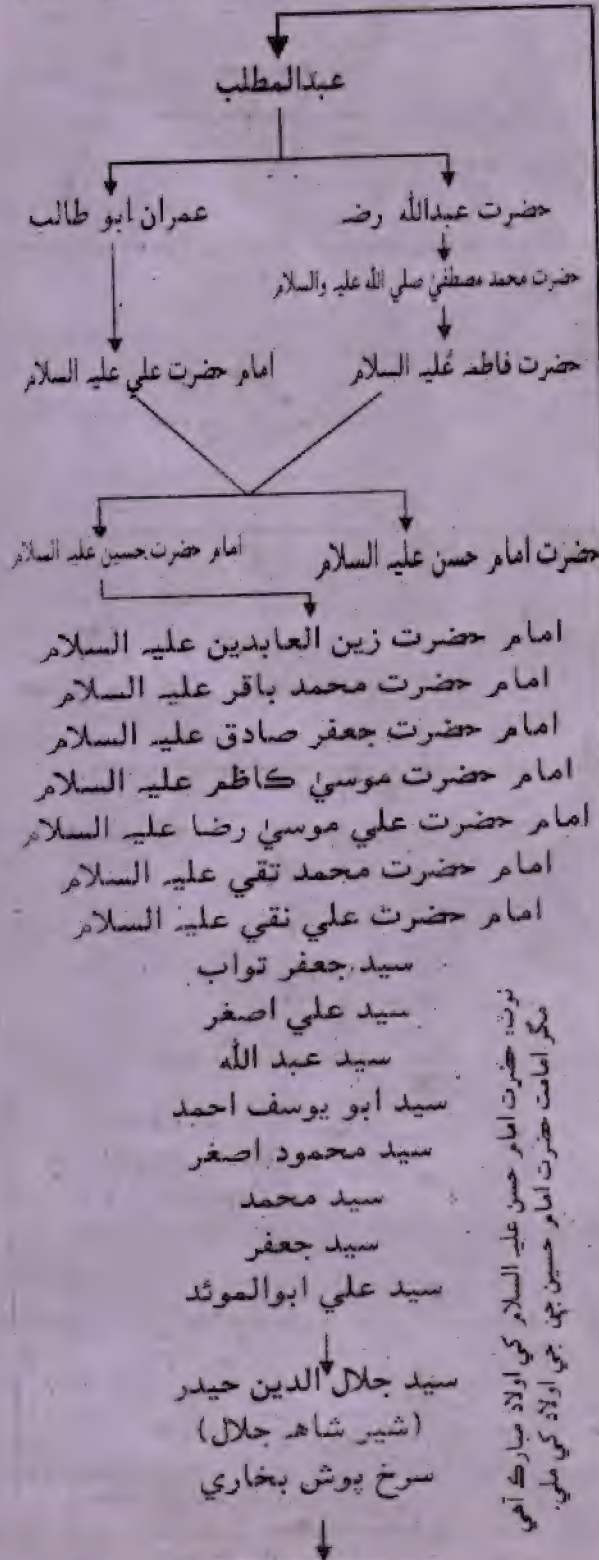 عبدالمطلب
حضرت عبدالله رضہ
عمران ابو طالب
حضرت محمد مصطفيٰ صلي الله عليہ والسلام
حضرت فاطمہ عليہ السلام
امام حضرت علي عليہ السلام
حضرت امام حسن عليہ السلام
امام حضرت حسين عليہ السلام
امام حضرت زين العابدين عليہ السلام
امام حضرت محمد باقر عليہ السلام
امام حضرت جعفر صادق عليہ السلام
امام حضرت موسيٰ ڪاظم عليہ السلام
امام حضرت علي موسيٰ رضا عليہ السلام
امام حضرت محمد تقي عليہ السلام
امام حضرت علي نقي عليہ السلام
سيد جعفر تواب
سيد علي اصغر
سيد عبد الله
سيد ابو يوسف احمد
سيد محمود اصغر
سيد محمد
سيد جعفر
سيد علي ابوالموئد
سيد جلال الدين حيدر
(شير شاهہ جلال)
سرخ پوش بخاري
نوٽ: حضرت امام حسن عليہ السلام کي اولاد مبارڪ آهي
مگر امامت حضرت امام حسين جي اولاد کي ملي.